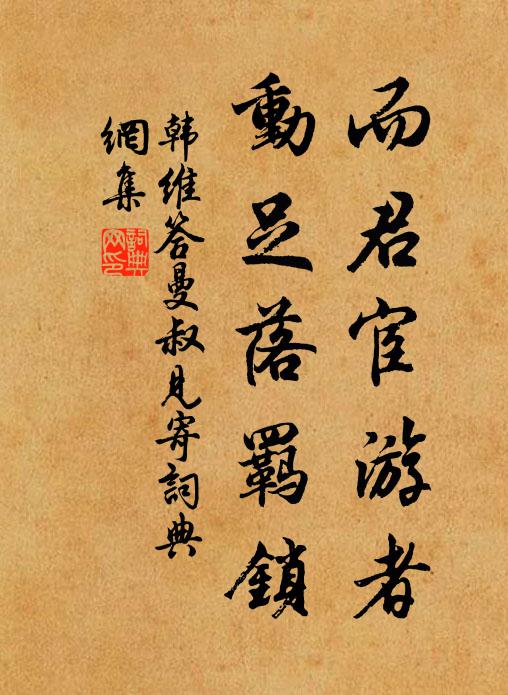 而君宦游者
動足落羈鎖
韩维答曼叔见寄詞典
網集
詞典
网印